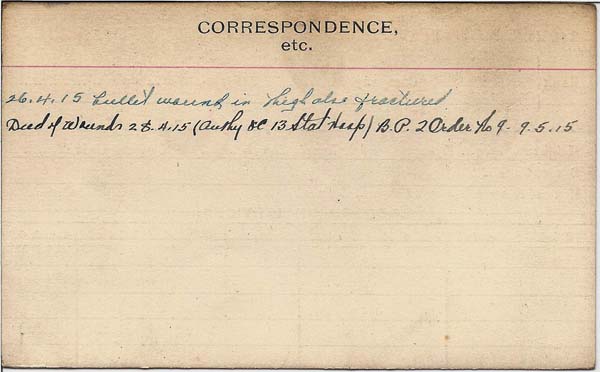 CORRESPONDENCE,
etc.
26.4.15 bullet wound in thigh also fractured
Died of Wounds 28.4.15 (Authy OC 13 Stat Hosp) B.P. 2 Order No 9. 9.5.15